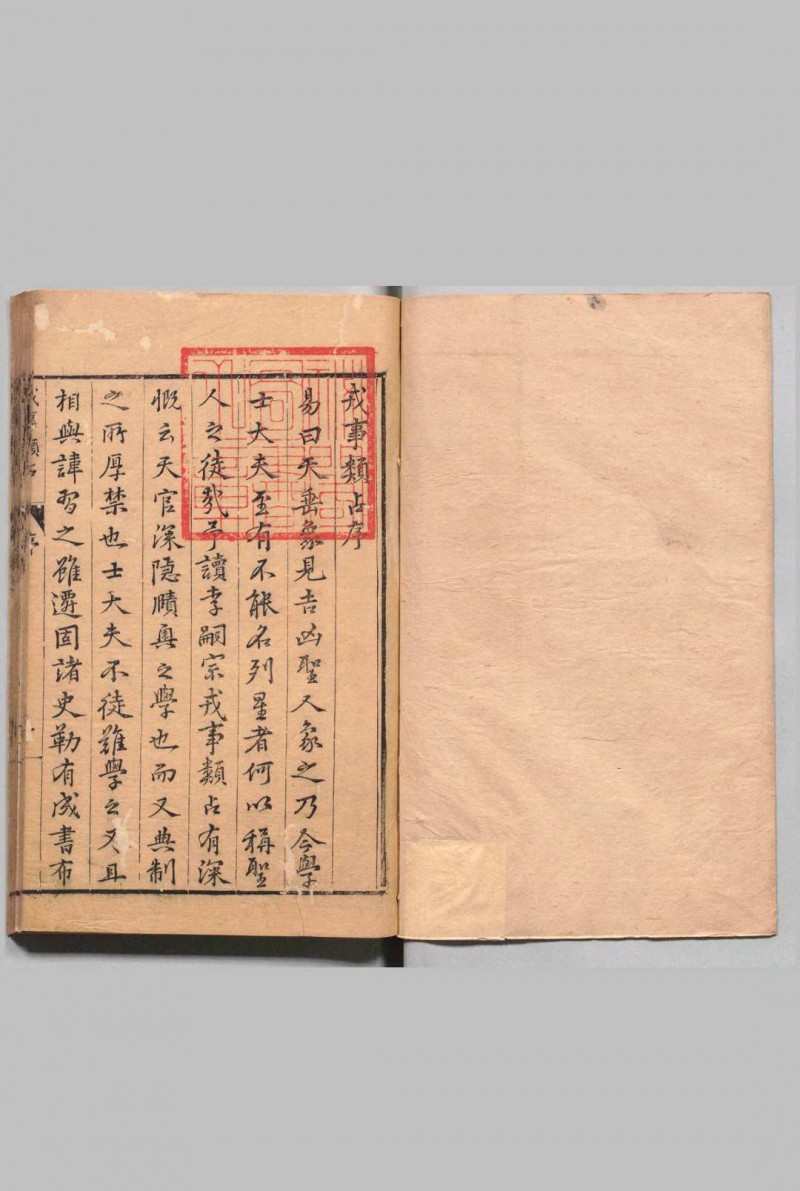 戎事類占序
易曰天垂象見吉凶聖人象之乃今學
士大夫至有不能名列星者何以稱聖
人之徒哉予讀李嗣宗戎事類占有深
慨云天官深隱賾奥之學也而又典制
之所厚禁也士大夫不徒難學之又且
相與諱習之雖遷固諸史勒有成書布
戎事類占 序